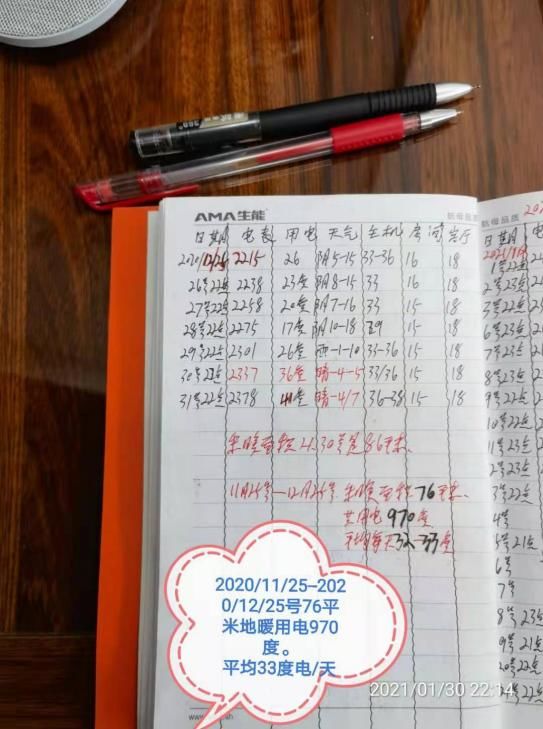 AMA生能
航母品质
日期 电表 用电 天气 主机 房间 客厅
2020/12/25 2215 26 阴5-15 33-36 16 18
26号22点 2238 23度 阴8-15 33 16 18
27号22点 2258 20度 阴7-16 33 15 18
28号22点 2275 17度 阴10-18 29 15 18
29号22点 2301 26度 雨-1-10 33-36 15 18
30号22点 2337 36度 晴-4-5 33/36 15 18
31号22点 2378 41度 晴-4/7 36-38 15 18
11月25号-12月25号 采暖面积76平米.
共用电970度
平均每天32-33度
日期
1号22点
2号23点
3号22点
6号23点
7号23点
8号23点
9号22点
10号22点
11号23点
2号23点
3号22点
4号
5号21点
6号
7号
8号23点
9号21点
20号22点
2020/11/25–202
0/12/25号76平
米地暖用电970
度。
平均33度电/天
2021/01/30 22:14